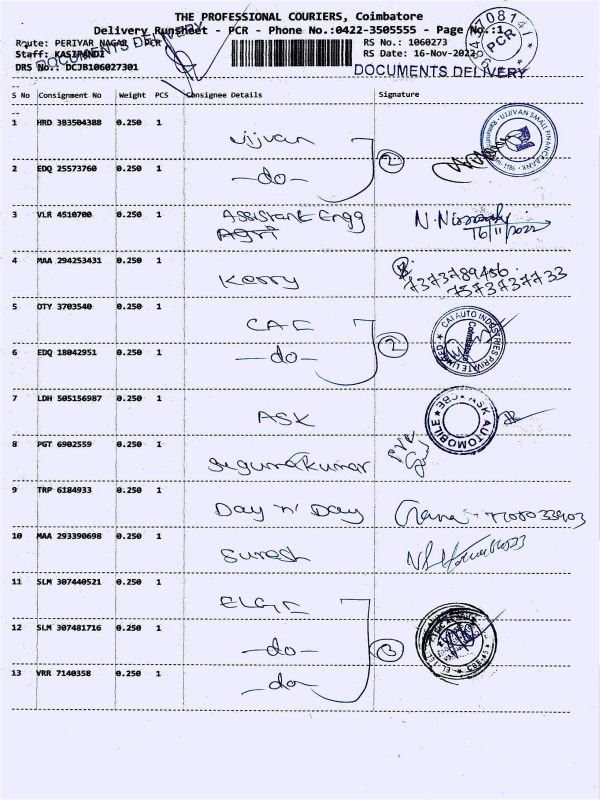 THE PROFESSIONAL COURIERS, Coimbatore
Delivery Runsheet - PCR - Phone No.:0422-3505555 - Page No.:1
Route: PERIYAR NAGAR PCR
RS No.: 1060273
Staff: KASIPANDI
RS Date: 16-Nov-2022
DRS No.: DCJB106027301
DOCUMENTS DELIVERY
DOCUMENTS DELIVERY
PCR
S No Consignment No Weight PCS Consignee Details Signature
1 HRD 383504388 0.250 1 ujjivan
UJJIVAN SMALL FINANCE BANK
2 EDQ 25573760 0.250 1 -do- 2
3 VLR 4510700 0.250 1 Assistant Engg
Agri
16/11/2022
4 MAA 294253431 0.250 1 Kerry
7373789456
7573737733
5 OTY 3703540 0.250 1 CAI
CAI AUTO INDUSTRIES PRIVATE LIMITED
Coimbatore
6 EDQ 18042951 0.250 1 -do- 2
7 LDH 505156987 0.250 1 ASK
ASK AUTOMOBILE CBE
8 PGT 6902559 0.250 1
9 TRP 6184933 0.250 1 Day n' Day
10 MAA 293390698 0.250 1 Suresh
11 SLM 307440521 0.250 1 ELGI
12 SLM 307481716 0.250 1 -do- 3
13 VRR 7140358 0.250 1 -do-